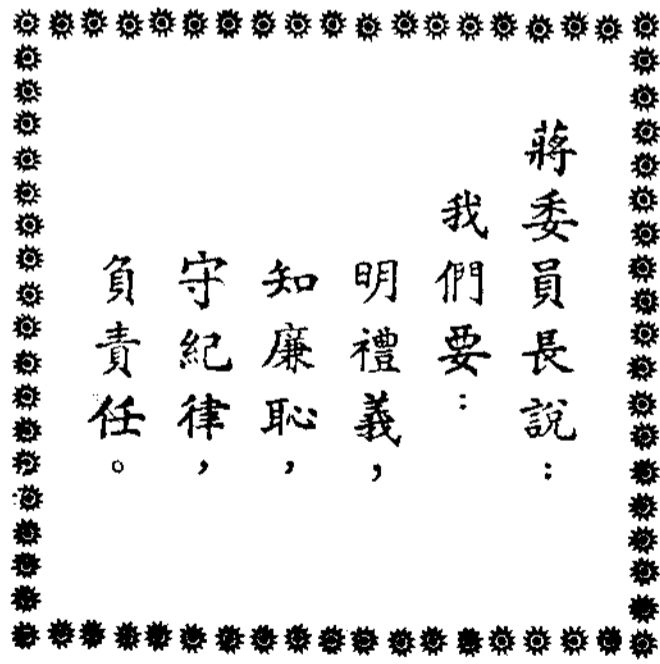 蔣委員長說：
我們要：
明禮義，
知廉恥，
守紀律，
負責任。